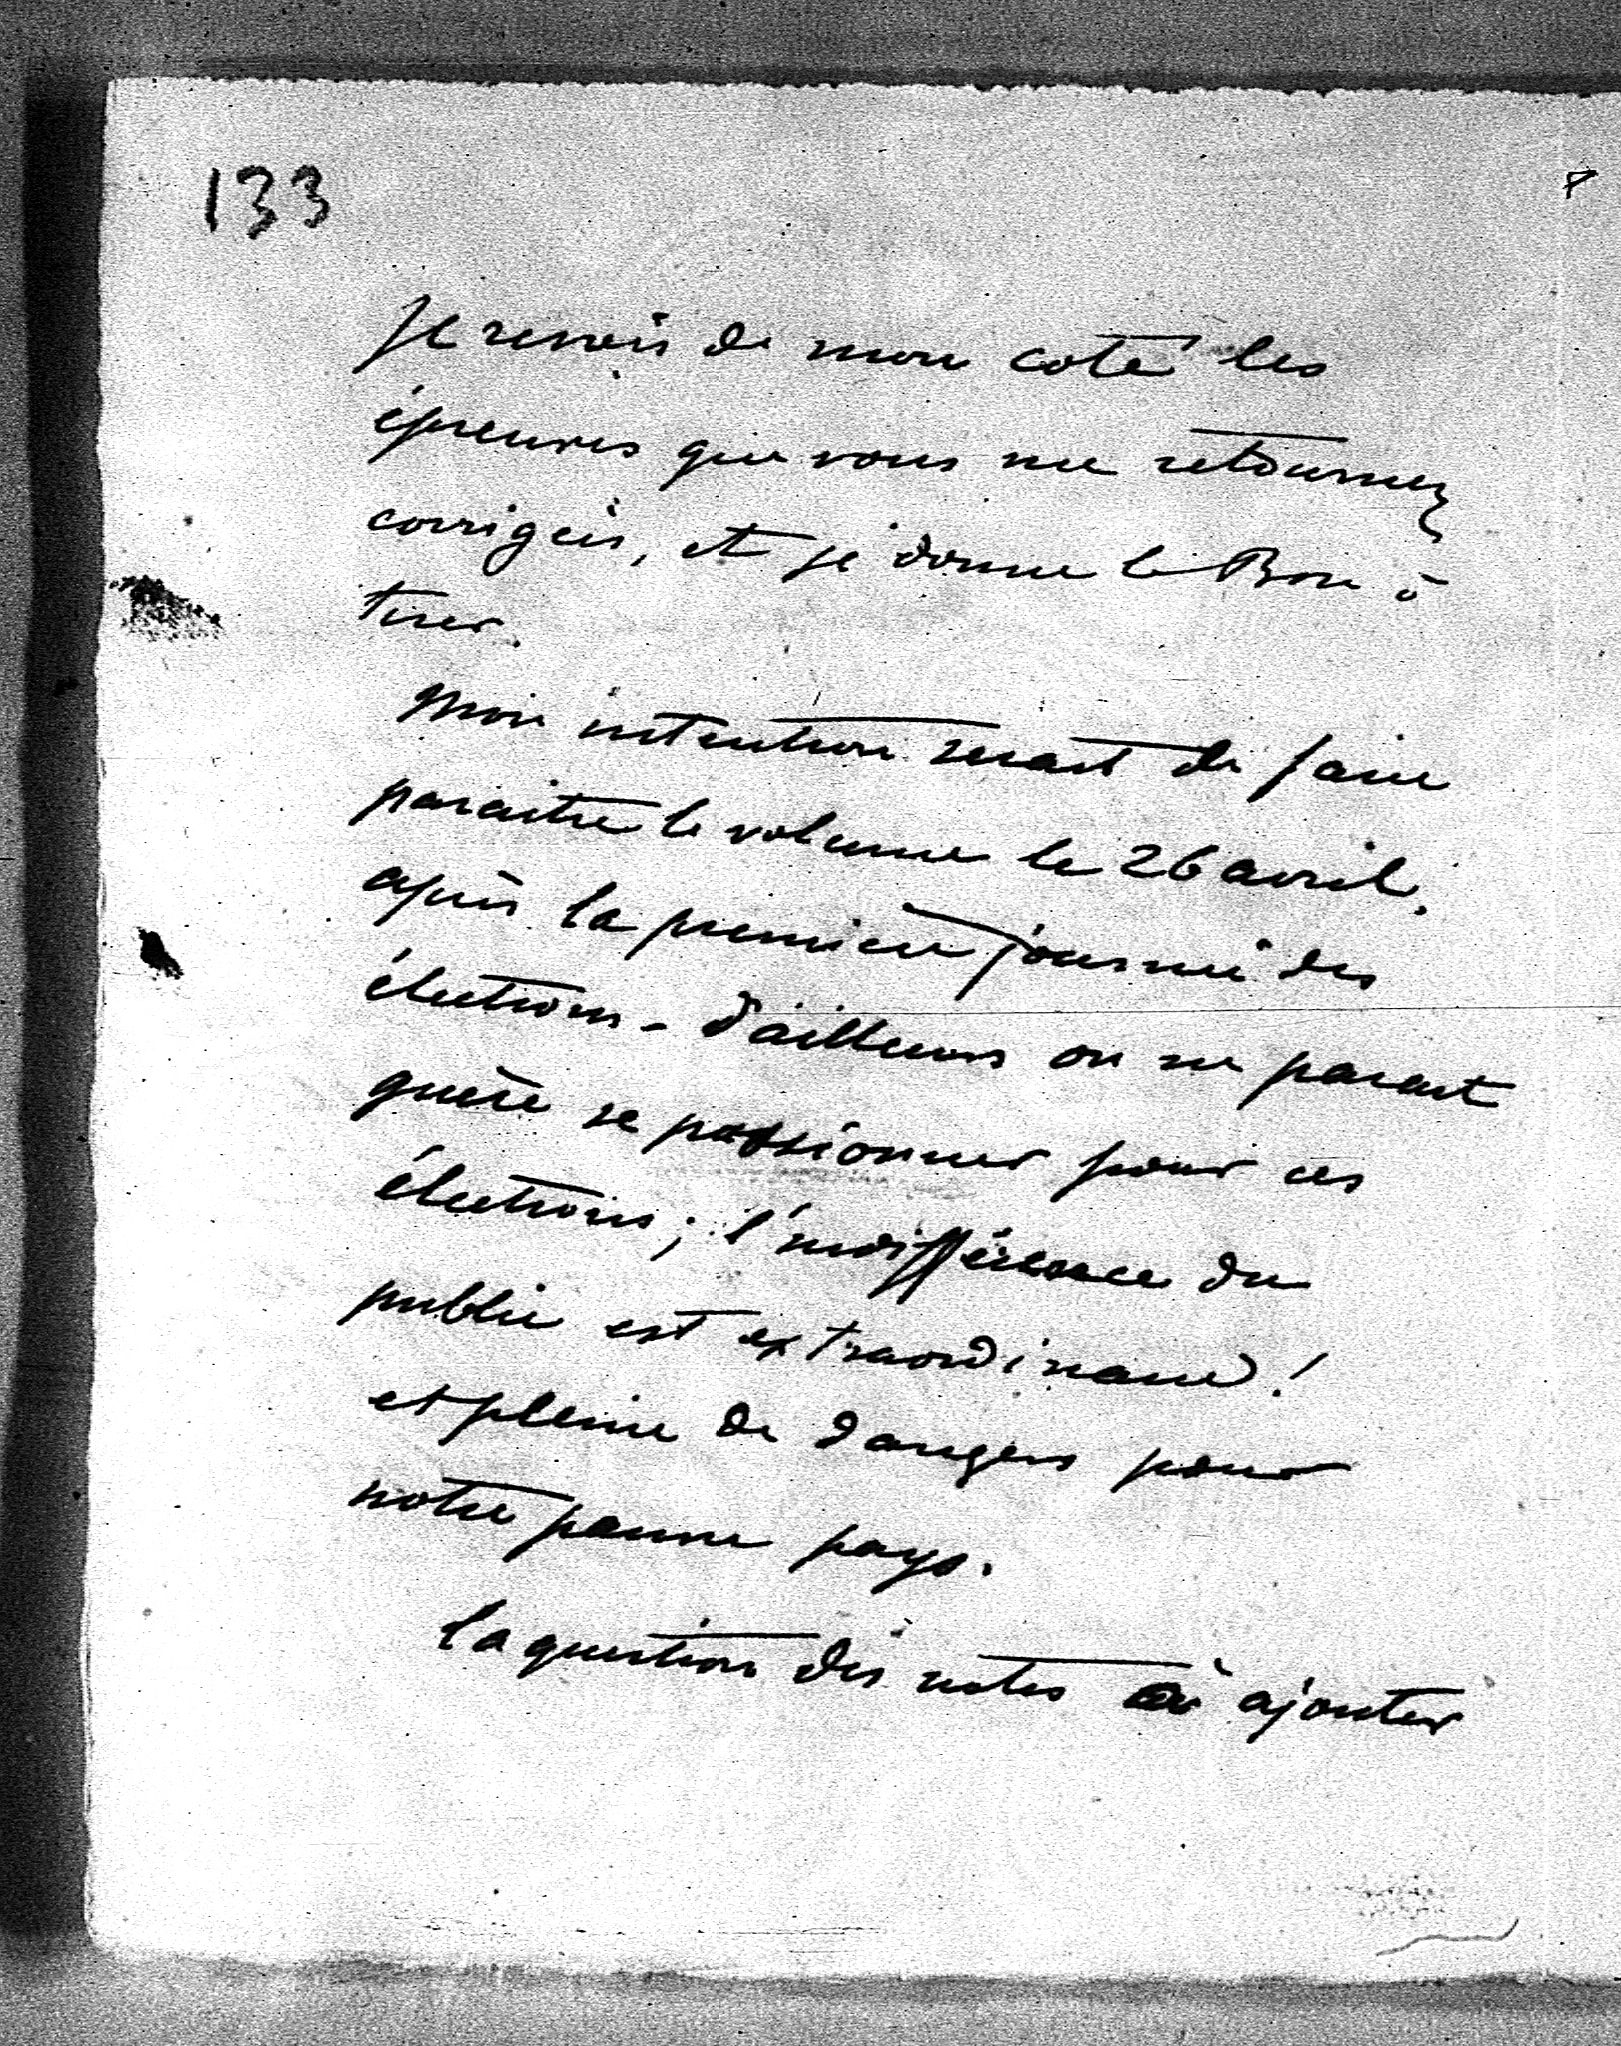 133
Je revois de mon coté les
épreuves que vous me retournez
corrigées, et je donne le Bon à
tirer.
Mon intention serait de faire
paraitre le volume le 26 avril,
après la première journée des
élections - d'ailleurs on ne parait
guère se passionner pour ces
élections ; l'indifférence du
public est extraordinaire !
et pleine de dangers pour
notre pauvre pays.
La question des notes à ajouter